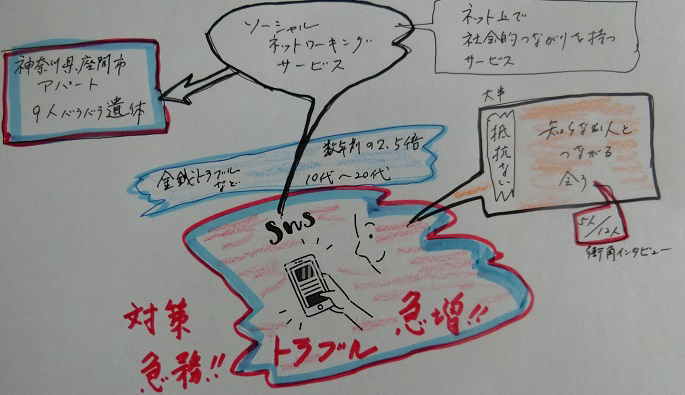 ソーシャル
ネットワーキング
サービス
ネット上で
社会的つながりを持つ
サービス
神奈川県座間市
アパート
9人バラバラ遺体
大半
抵抗ない
知らない人と
つながる
会う
5人/12人
街角インタビュー
数年前の2.5倍
金銭トラブル
など
10代～20代
SNS
トラブル 急増!!
対策
急務!!